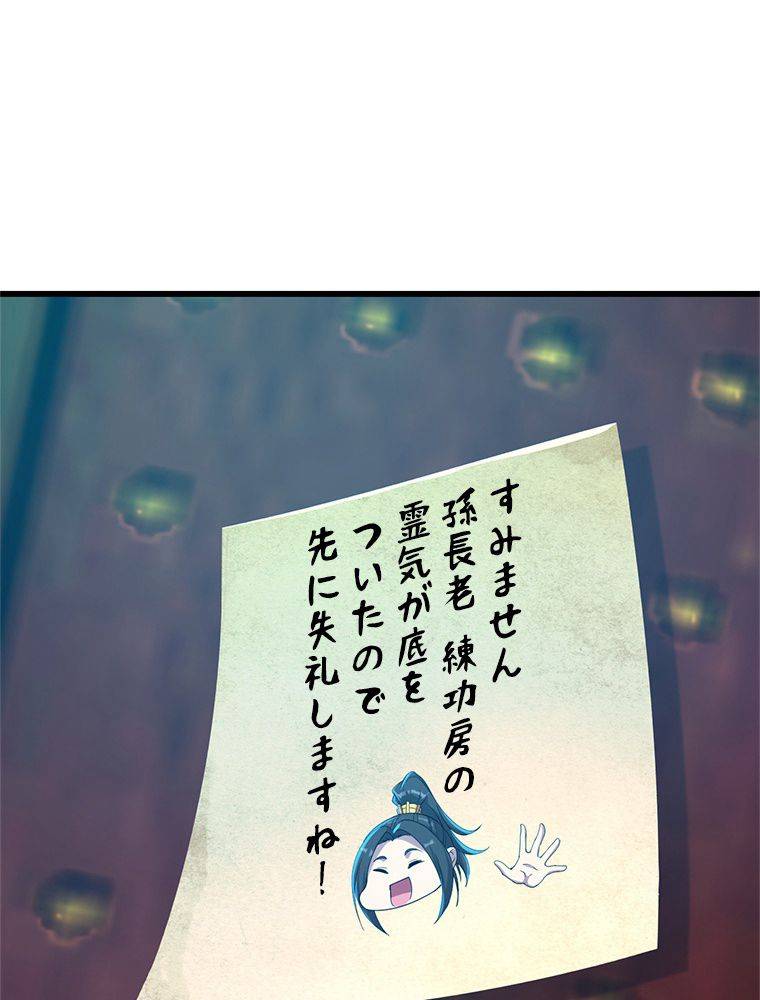 すみません
孫長老 練功房の
霊気が底を
ついたので
先に失礼しますね!